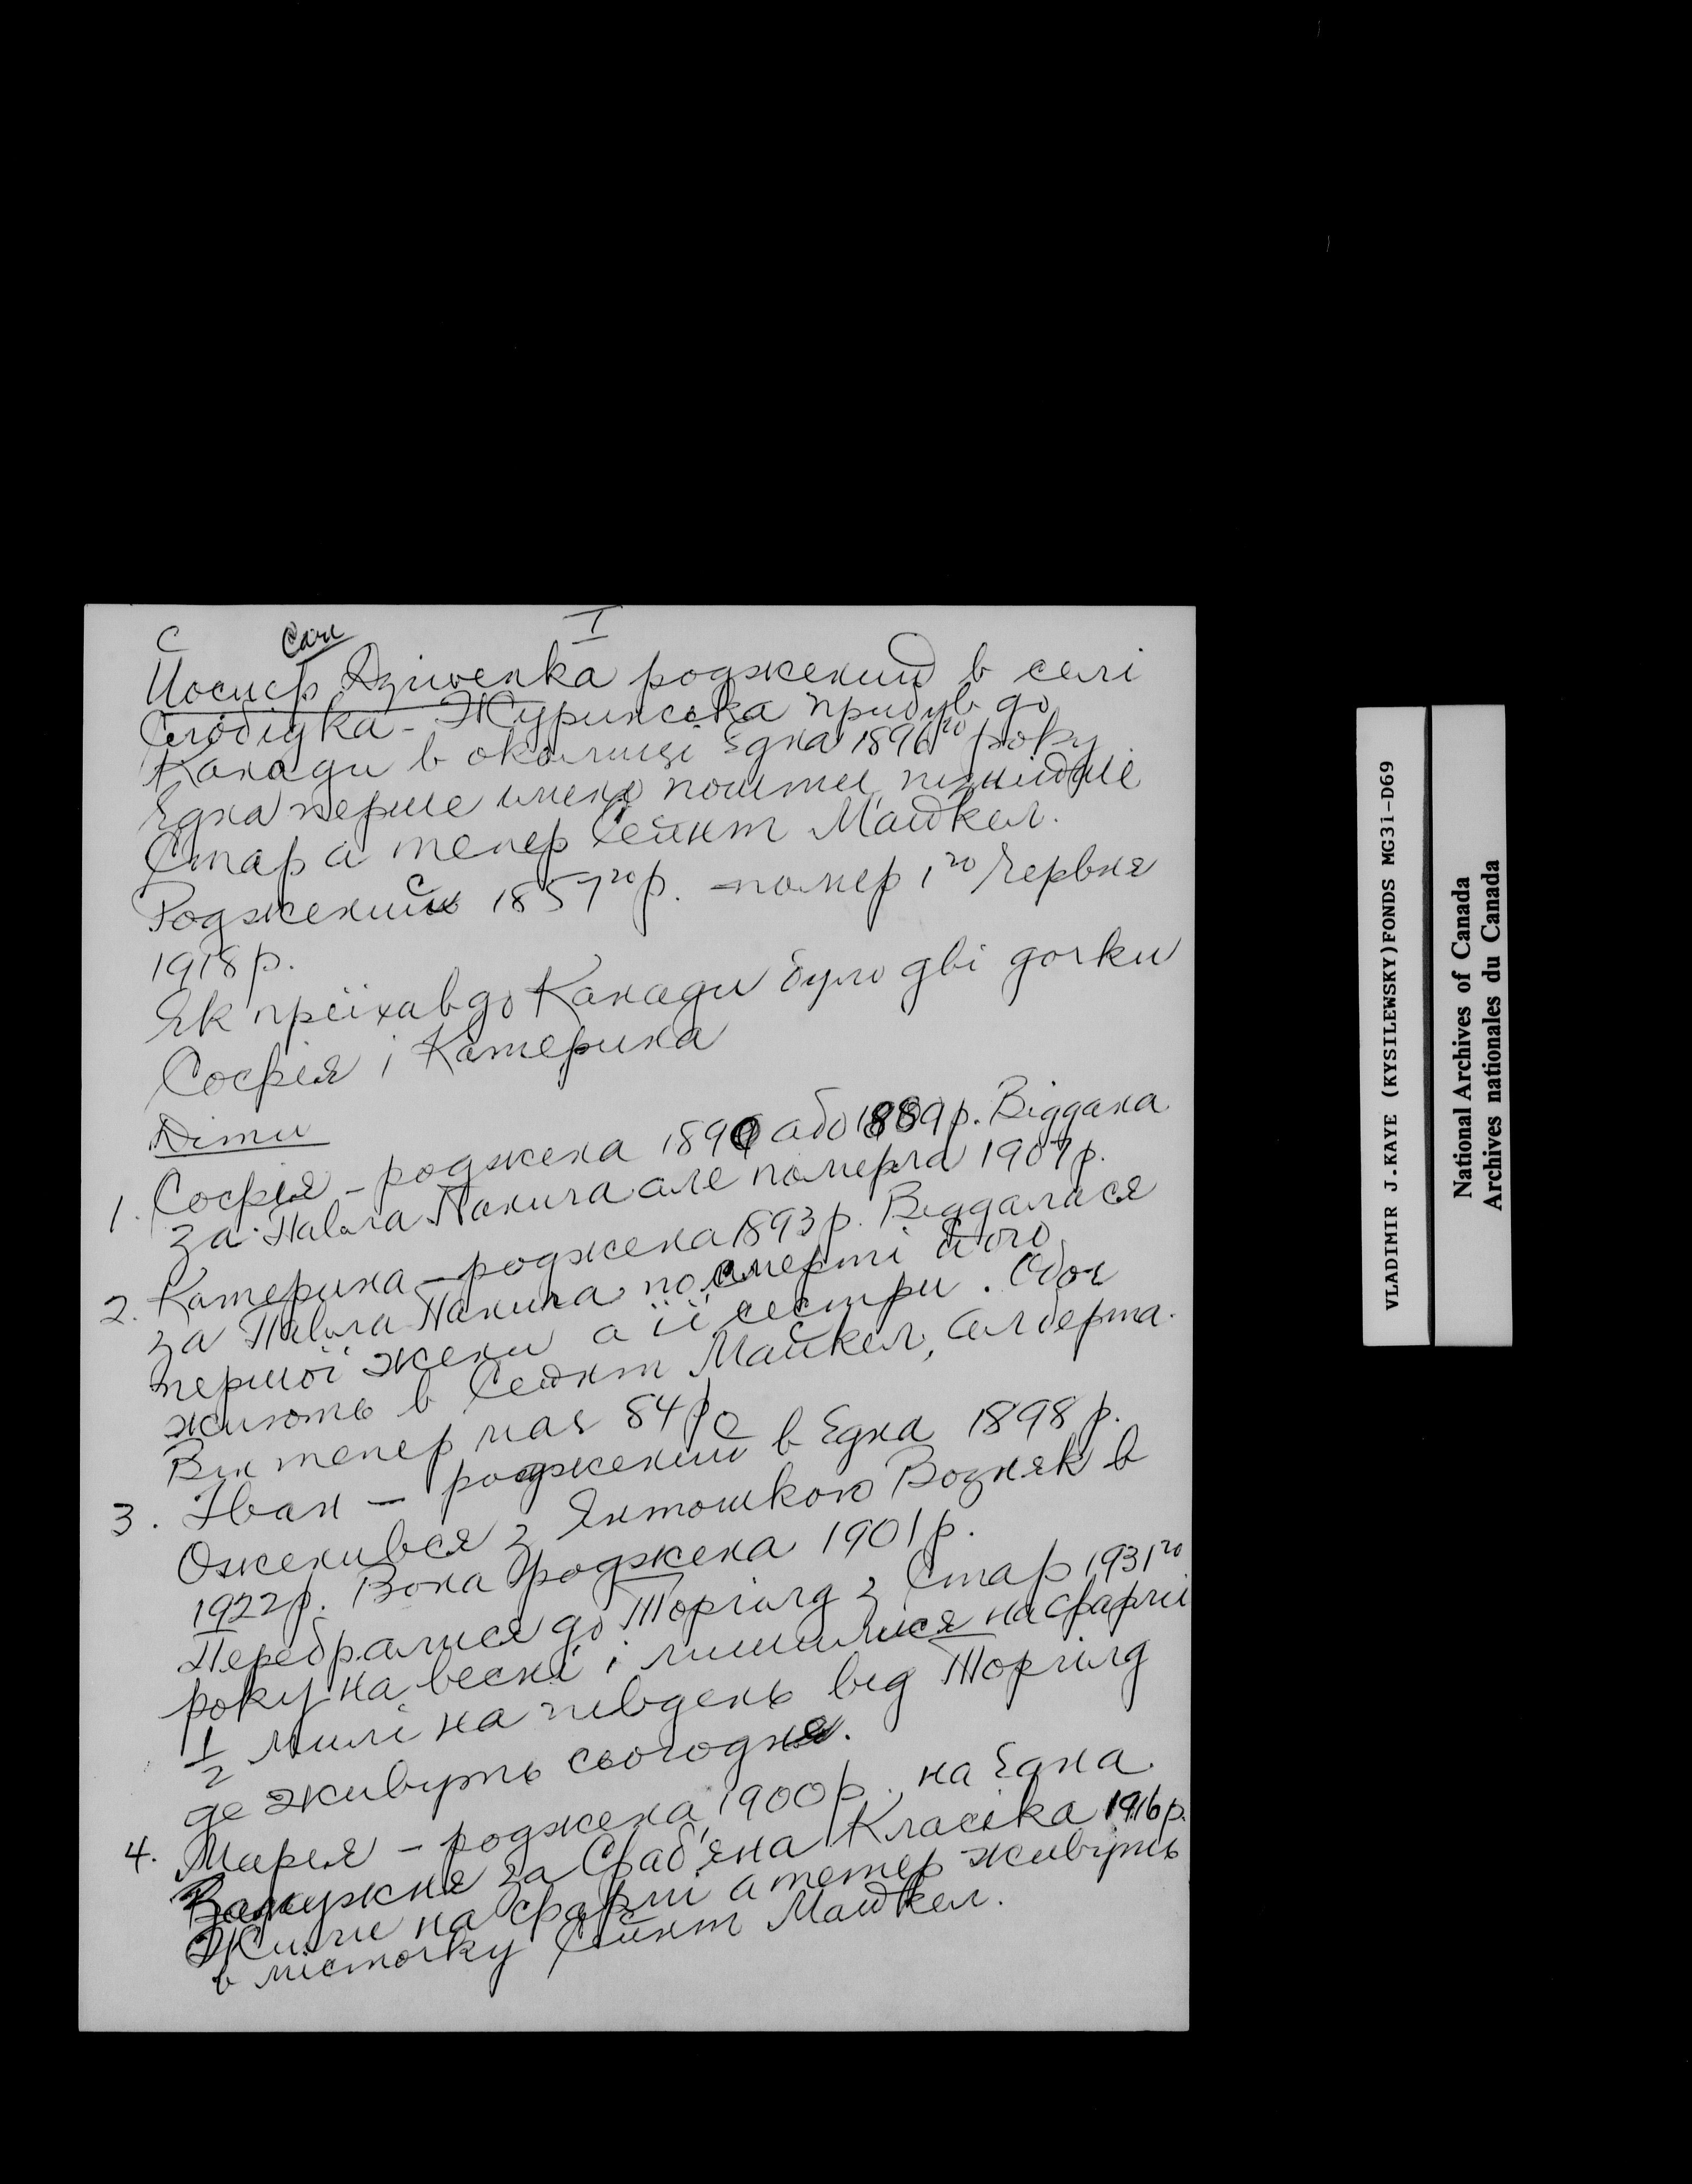 I
С Care
Йосиф Дзівенка роджений в селі
Слобідка-Журинська прибув до
Канади в околиці Една 1896го року
Една перше имено пошти, пізнійше
Стар а тепер Сейнт Майкел.
Роджений 1857го р. помер 1го Червня
1918 р.
Як приїхав до Канади було дві дочки
Софія і Катерина
Діти
1. Софія - роджена 1890 або 1889 р. Віддана
за Павла Пакича але померла 1907 р.
2. Катерина - роджена 1893 р. Віддалася
за Павла Пакича по смерті його
першої жени а її сестри. Обоє
жиють в Сейнт Майкел, Алберта.
Він тепер має 84 р.
3. Іван - роджений в Една 1898 р.
Оженився з Янтошкою Возняк в
1922 р. Вона роджена 1901 р.
Перебралися до Торгилд з Стар 1931го
року на весні і лишилися на фармі
1/2 милі на південь від Торгилд
де живуть сьогодня.
4. Марія - роджена 1900 р. на Една
Замужня за Фаб'яна Класіка 1916 р.
Жили на фармі а тепер живуть
в місточку Сейнт Майкел.
VLADIMIR J.KAYE (KYSILEWSKY)FONDS MG31-D69
National Archives of Canada
Archives nationales du Canada